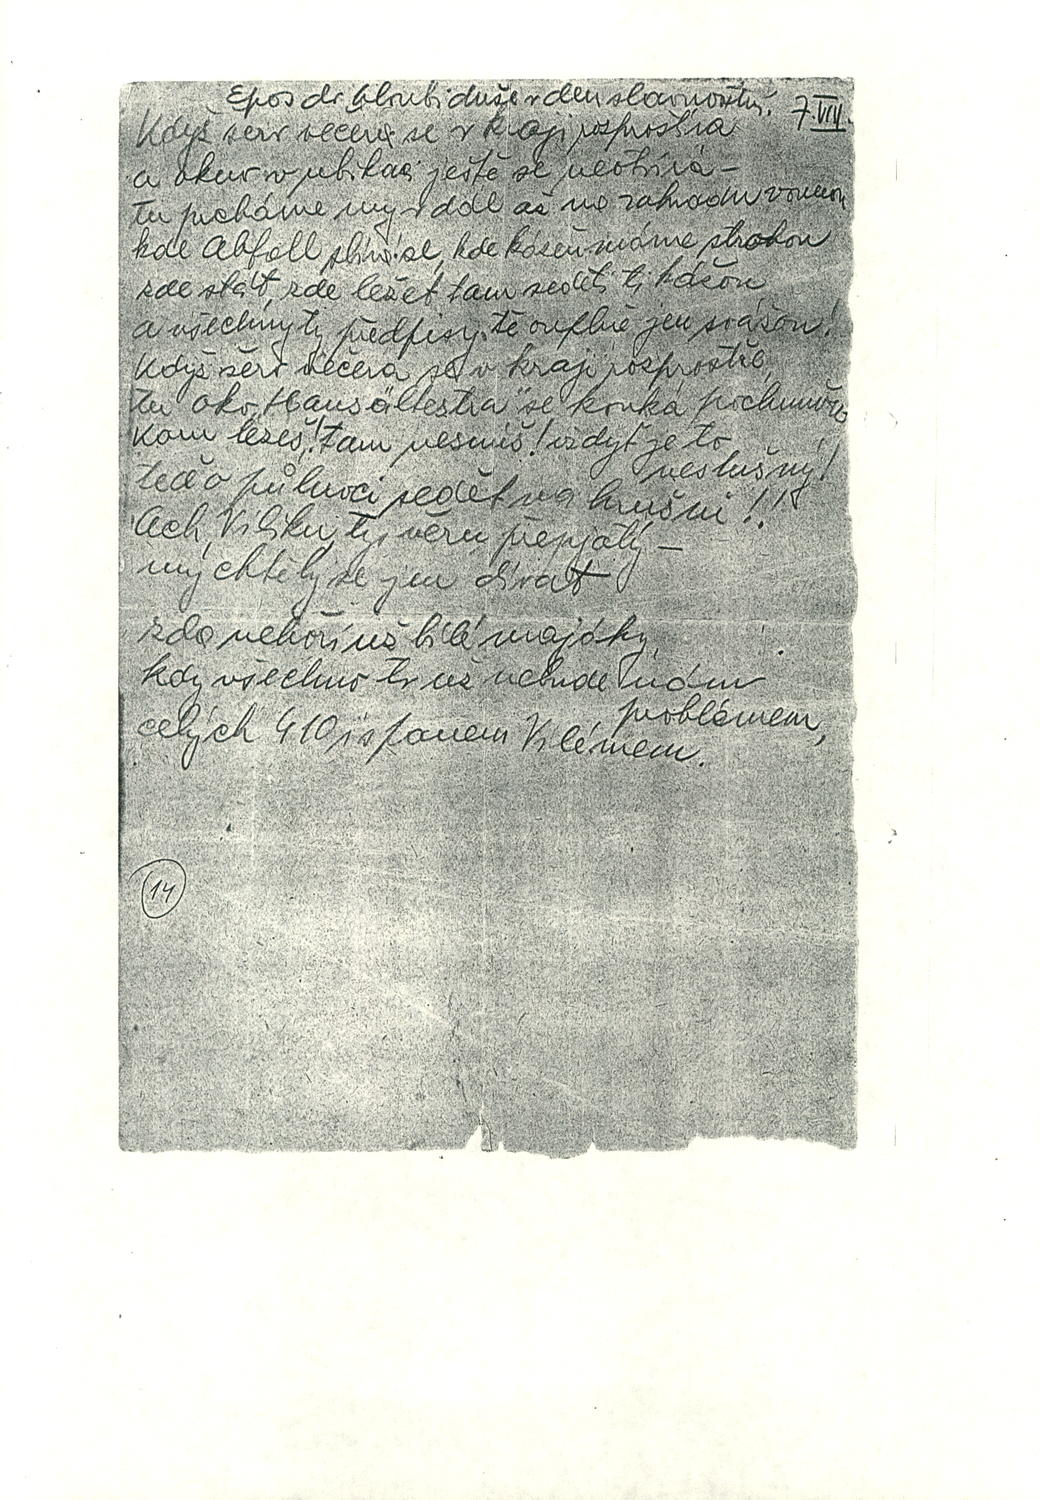 Epos do hloubi duše v den slavnostní. 7.VIII.
Když šero večera se v kraji rozprostírá
a okno v ubikaci ještě se neotvírá –
tu pícháme my v dál až na zahradu vonnou,
kde Abfall plní se, kde kázeň máme strohou
zde stát, zde ležet tam sedět ti kážou
a všechny ty předpisy tě úplně jen svážou!
Když šero večera se v kraji rozprostře,
tu oko „Hausältestra" se kouká pochmuře
Kam lezeš! Tam nesmíš! vždyť je to
neslušný!
teď o půlnoci sedět na hrušni!!"
Ach, Vilíku, ty věru přepjatý –
my chtěly se jen dívat
zda nehoří už bílé majáky,
kdy všechno to už nebude nám
problémem,
celých 410 i s panem Vilémem.
14